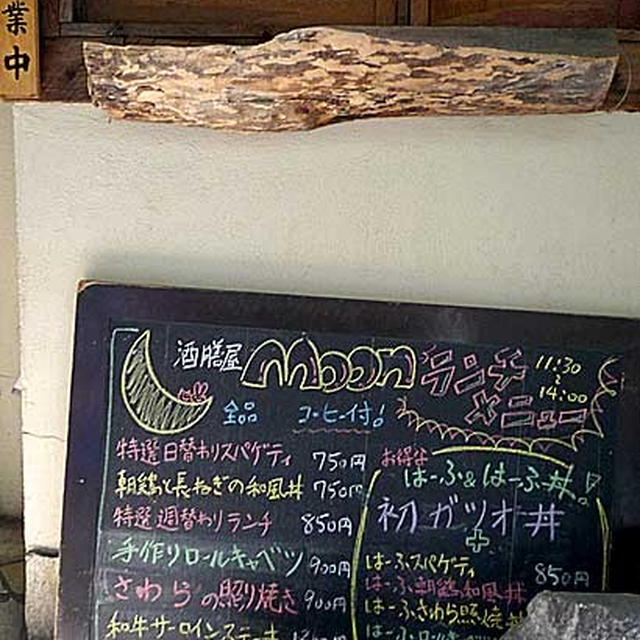 業中
酒膳屋 moon ランチメニュー 11:30～14:00
全品 コーヒー付!
特選日替わりスパゲティ 750円
朝鶏と長ねぎの和風丼 750円
特選週替わりランチ 850円
手作りロールキャベツ 900円
さわらの照り焼き 900円
和牛サーロインステーキ
お得な
はーふ&はーふ丼!
初ガツオ丼
+
はーふスパゲティ 850円
はーふ朝鶏和風丼
はーふさわら照焼丼